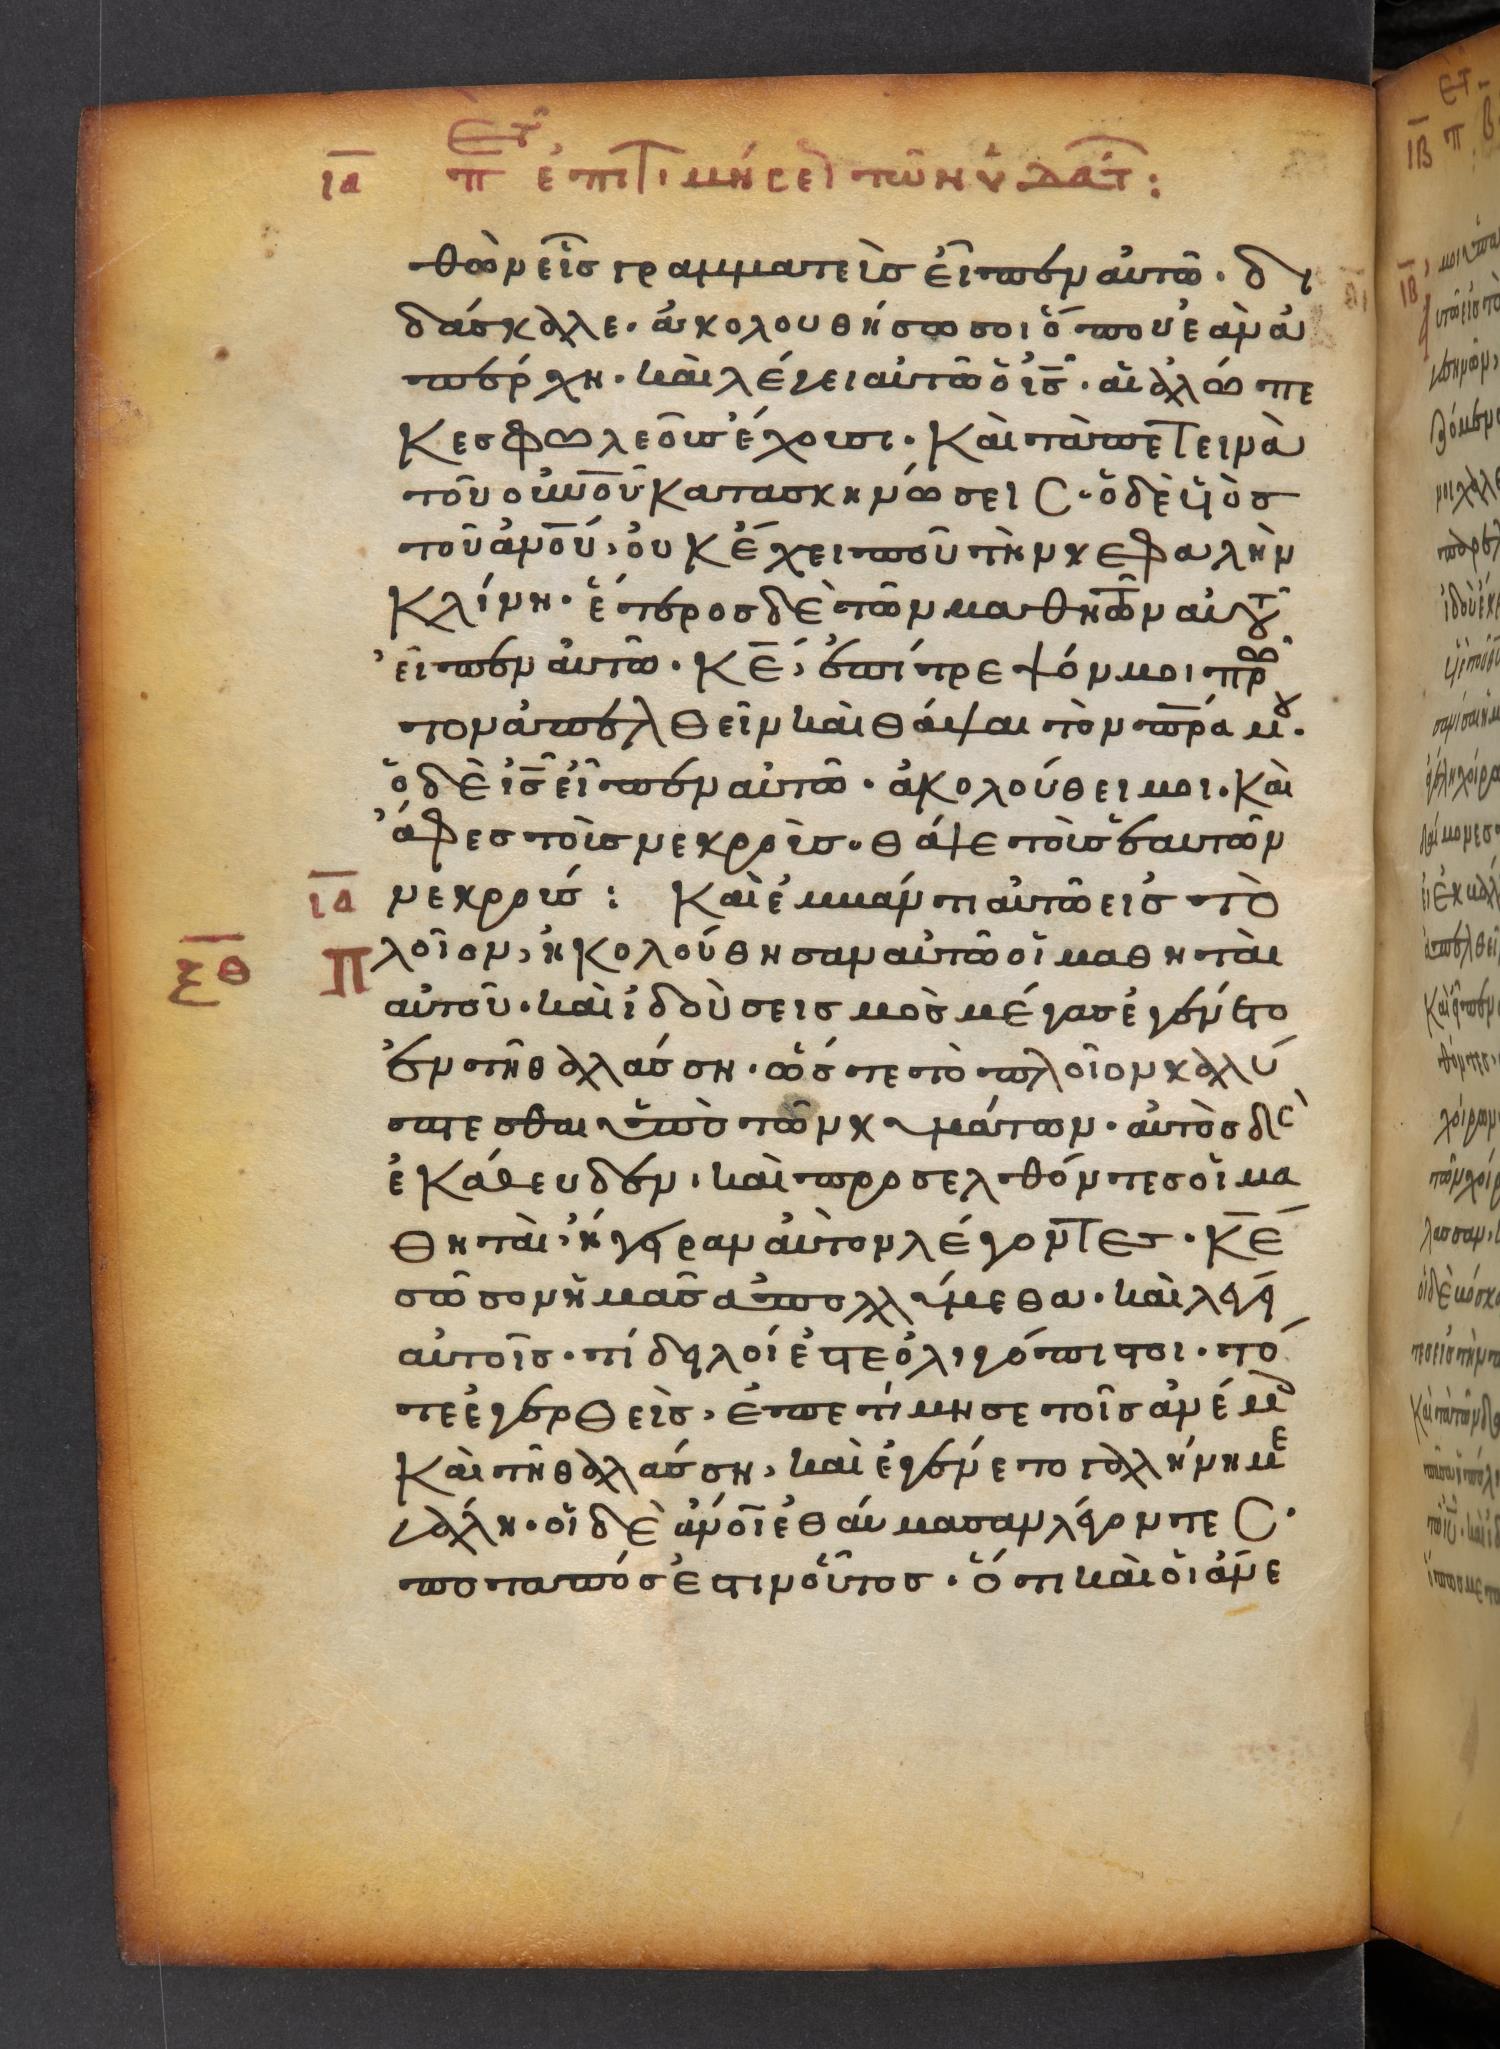 ια π ετ ἐπιτιμήσει τῶν ὑδάτ :
θὼν εἷς γραμματεὺς εἶπεν αὐτῶ · δι
δάσκαλε · ἀκολουθήσω σοι ὅπου ἐὰν ἀ
πέρχη · καὶ λέγει αὐτῶ ὁ ις · αἱ ἀλώπε
κες φωλεοὺς ἔχουσι · καὶ τὰ πετεινὰ
τοῦ οὐνοῦ κατασκηνώσεις · ὁ δὲ υἱὸς
τοῦ ἀνοῦ, οὐκ ἔχει ποῦ τὴν κεφαλὴν
κλίνη · ἕτερος δὲ τῶν μαθητῶν αὐτοῦ
εἶπεν αὐτῶ · κε, ἐπίτρεψόν μοι πρῶ
τον ἀπελθεῖν καὶ θάψαι τὸν πρα μου ·
ὁ δὲ ις εἶπεν αὐτῶ · ἀκολούθει μοι · καὶ
ἄφες τοὺς νεκροὺς · θάψαι τοὺς ἑαυτῶν
ια νεκρούς : Καὶ ἐμβάντι αὐτῶ εἰς τὸ
ξθ πλοῖον, ἠκολούθησαν αὐτῶ οἱ μαθηταὶ
αὐτοῦ · καὶ ἰδοὺ σεισμὸς μέγας ἐγένετο
ἐν τῆ θαλάσση · ὥστε τὸ πλοῖον καλύ
πτεσθαι ὑπὸ τῶν κυμάτων · αὐτὸς δὲ
ἐκάθευδεν · καὶ προσελθόντες οἱ μα
θηταὶ, ἤγειραν αὐτὸν λέγοντες · κε
σῶσον ἡμᾶς ἀπολλύμεθα · καὶ λέγει
αὐτοῖς · τί δειλοί ἐστε ὀλιγόπιστοι · τό
τε ἐγερθεὶς, ἐπετίμησε τοῖς ἀνέμοις
καὶ τῆ θαλάσση, καὶ ἐγένετο γαλήνη με
γάλη · οἱ δὲ ἀνοι ἐθαύμασαν λέγοντες ·
ποταπός ἐστιν οὗτος · ὅτι καὶ οἱ ἄνε